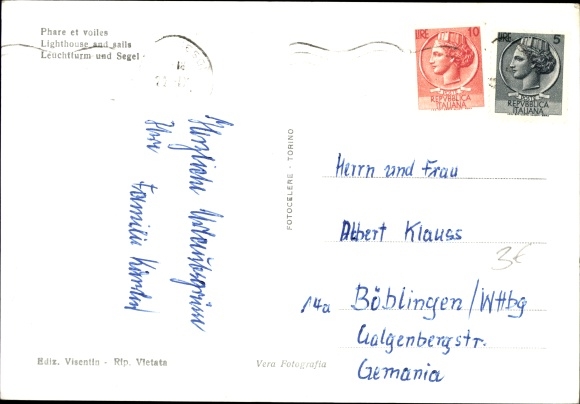 Phare et voiles
Lighthouse and sails
Leuchtturm und Segel
LIRE 10
POSTE
REPVBBLICA
ITALIANA
LIRE 5
POSTE
REPVBBLICA
ITALIANA
Herzliche Urlaubsgrüße
Ihre Familie
FOTOCELERE - TORINO
Herrn und Frau
Albert Klauss
3€
14a Böblingen/Wttbg
Galgenbergstr.
Gemania
Ediz. Visentin - Rip. Vietata
Vera Fotografia